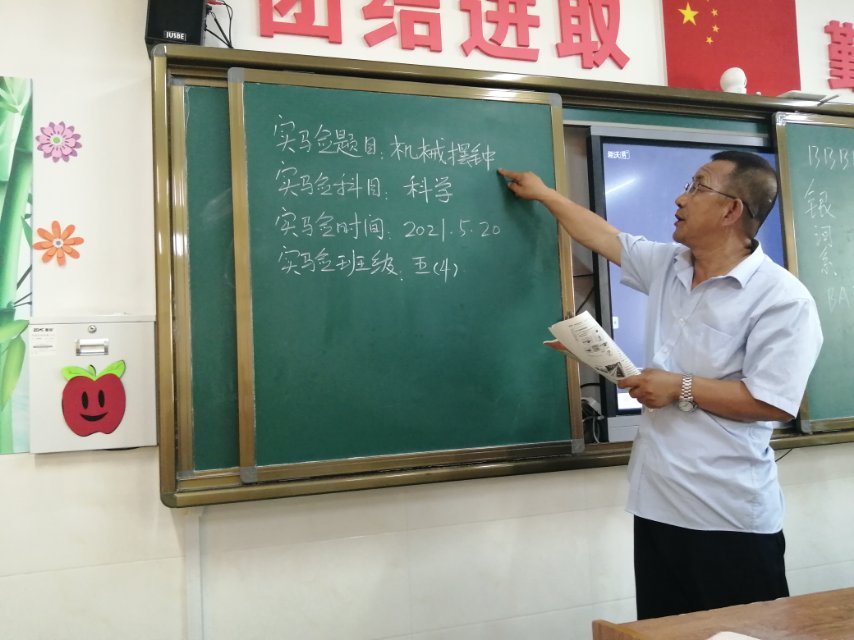 JUSBE
团结进取
勤
实验题目：机械摆钟
实验科目：科学
实验时间：2021.5.20
实验班级：五(4)
BBB
银
词
系
BA